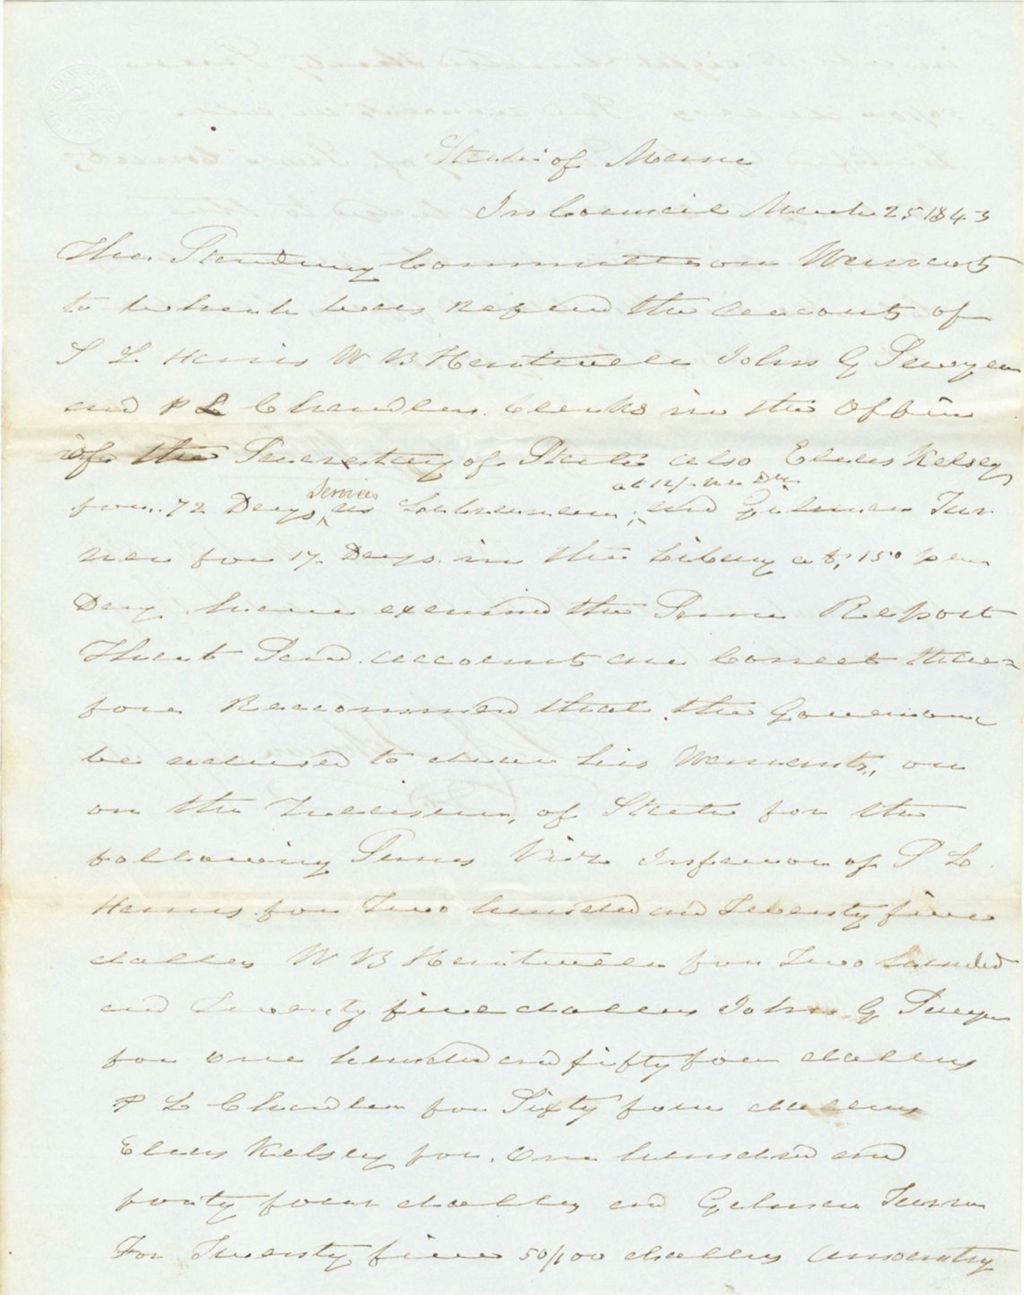 State of Maine
In Council March 25 1843
The Standing Committee on Warrants
to which was Refered the accounts of
S L Harris W B Hartwell John G Sawyer
and P L Chandler Clerks in the Office
of the Secretary of State also Elias Kelsey
for 72 Days Servis as Librarian at 12/ per Day and Gilman Tur
ner for 17 Days in the Libary at 150 per
Day have examind the Same Report
That Said accounts are Correct there=
fore Reccommend that the Governour
be advised to draw his Warrants, on
on the Treasurer, of State for the
following Sums Viz In favor of S L
Harris for Two hundred and Seventy five
dollars W B Hartwell for Two hundred
and Seventy five dollars John G Sawyer
for one hundred and fifty four dollars
P L Chandler for Sixty four dollars
Elias Kelsey for One hundred and
forty four dollars and Gilman Turner
For Twenty five 50/100 dollars amounting